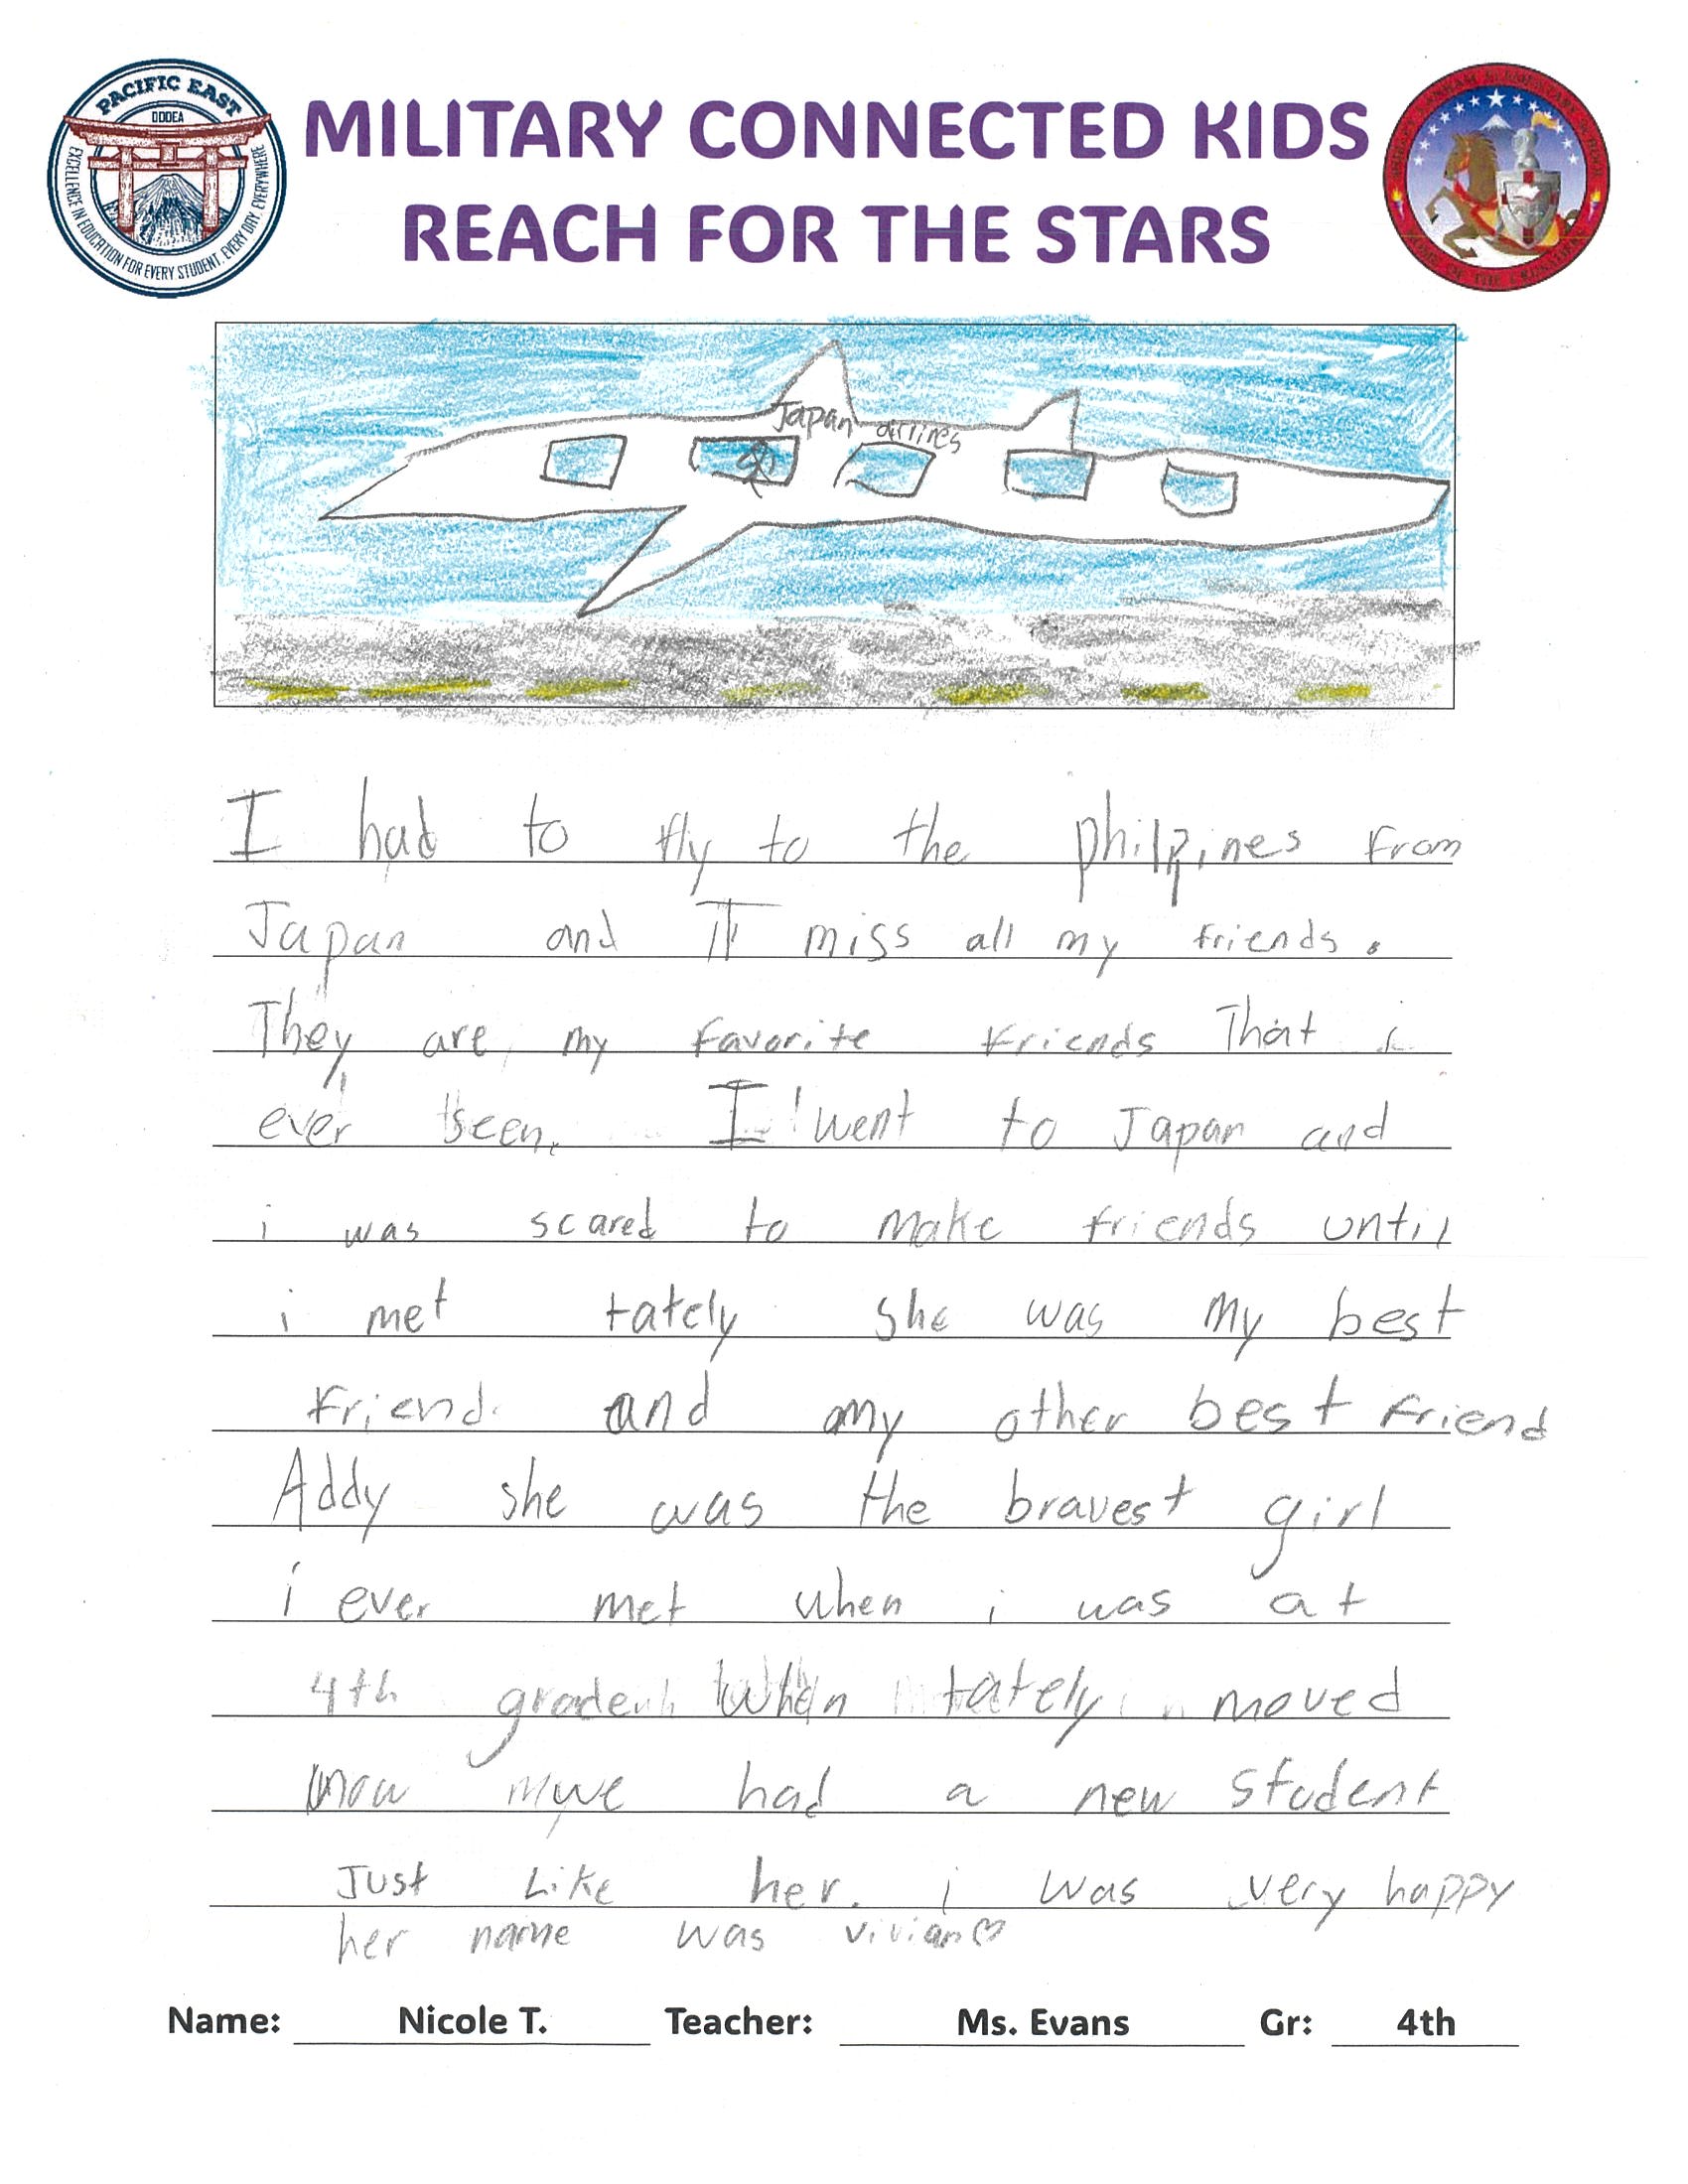 PACIFIC EAST
DODEA
EXCELLENCE IN EDUCATION FOR EVERY STUDENT, EVERY DAY, EVERYWHERE
MILITARY CONNECTED KIDS
REACH FOR THE STARS
HOME OF THE CRUSADERS
Japan airlines
I had to fly to the philppines from
Japan and I miss all my friends.
They are my favorite friends That i
ever seen. I went to Japan and
i was scared to make friends until
i met tately she was my best
friend. and my other best friend
Addy she was the bravest girl
i ever met when i was at
4th grade When tately moved
now we had a new student
Just Like her. i was very happy
her name was vivian♡
Name: Nicole T. Teacher: Ms. Evans Gr: 4th